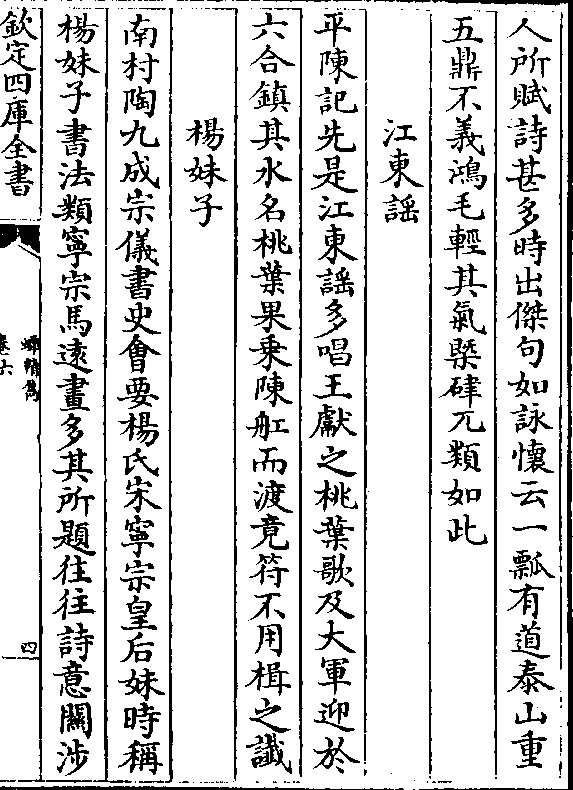 人所賦詩甚多時出傑句如詠懷云一瓢有道泰山重
五鼎不義鴻毛輕其氣槩硉兀類如此
江東謡
平陳記先是江東謡多唱王獻之桃葉歌及大軍迎於
六合鎮其水名桃葉果乗陳舡而渡竟符不用楫之䜟
楊妹子
南村陶九成宗儀書史會要楊氏宋寧宗皇后妹時稱
楊妹子書法類寧宗馬遠畫多其所題往往詩意關涉
欽定四庫全書
蟫精雋
卷六
四